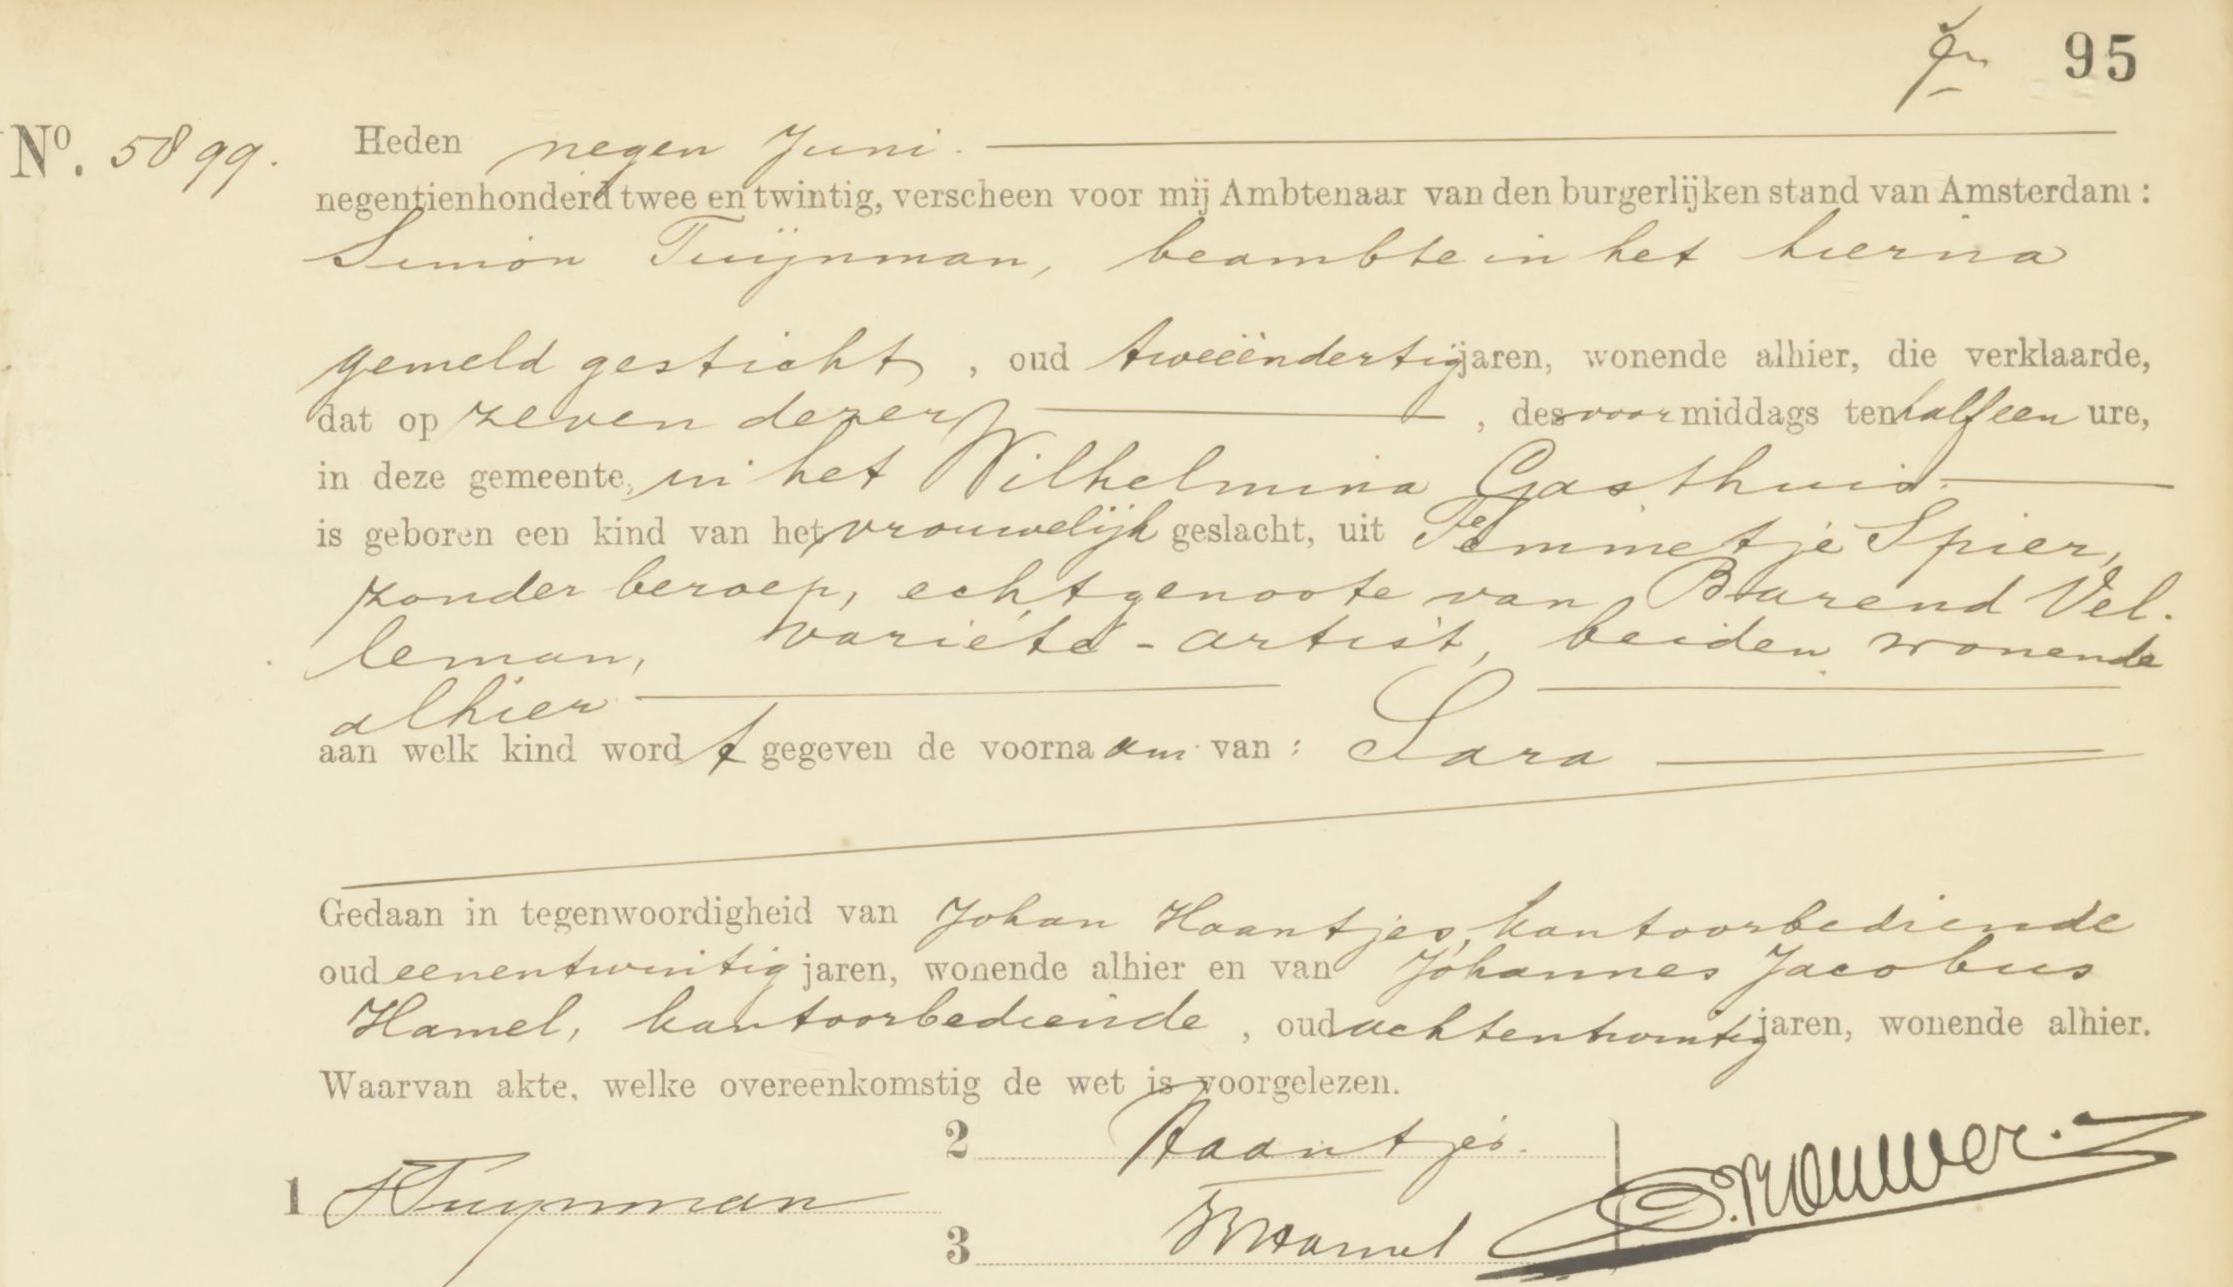 95
No. 5899. Heden negen Juni.
negentienhonderd twee en twintig, verscheen voor mij Ambtenaar van den burgerlijken stand van Amsterdam:
Simon Tuijnman, beambte in het hierna
gemeld gesticht, oud tweeëndertig jaren, wonende alhier, die verklaarde,
dat op zeven dezer, des voormiddags ten half een ure,
in deze gemeente, in het Wilhelmina Gasthuis
is geboren een kind van het vrouwelijk geslacht, uit Femmetje Spier,
zonder beroep, echtgenoote van Barend Vel-
leman, variété-artist, beiden wonende
alhier
aan welk kind wordt gegeven de voornaam van: Sara
Gedaan in tegenwoordigheid van Johan Haantjes, kantoorbediende
oud eenentwintig jaren, wonende alhier en van Johannes Jacobus
Hamel, kantoorbediende, oud achtentwintig jaren, wonende alhier.
Waarvan akte, welke overeenkomstig de wet is voorgelezen.
2 Haantjes.
1 STuynman
3 Hamel